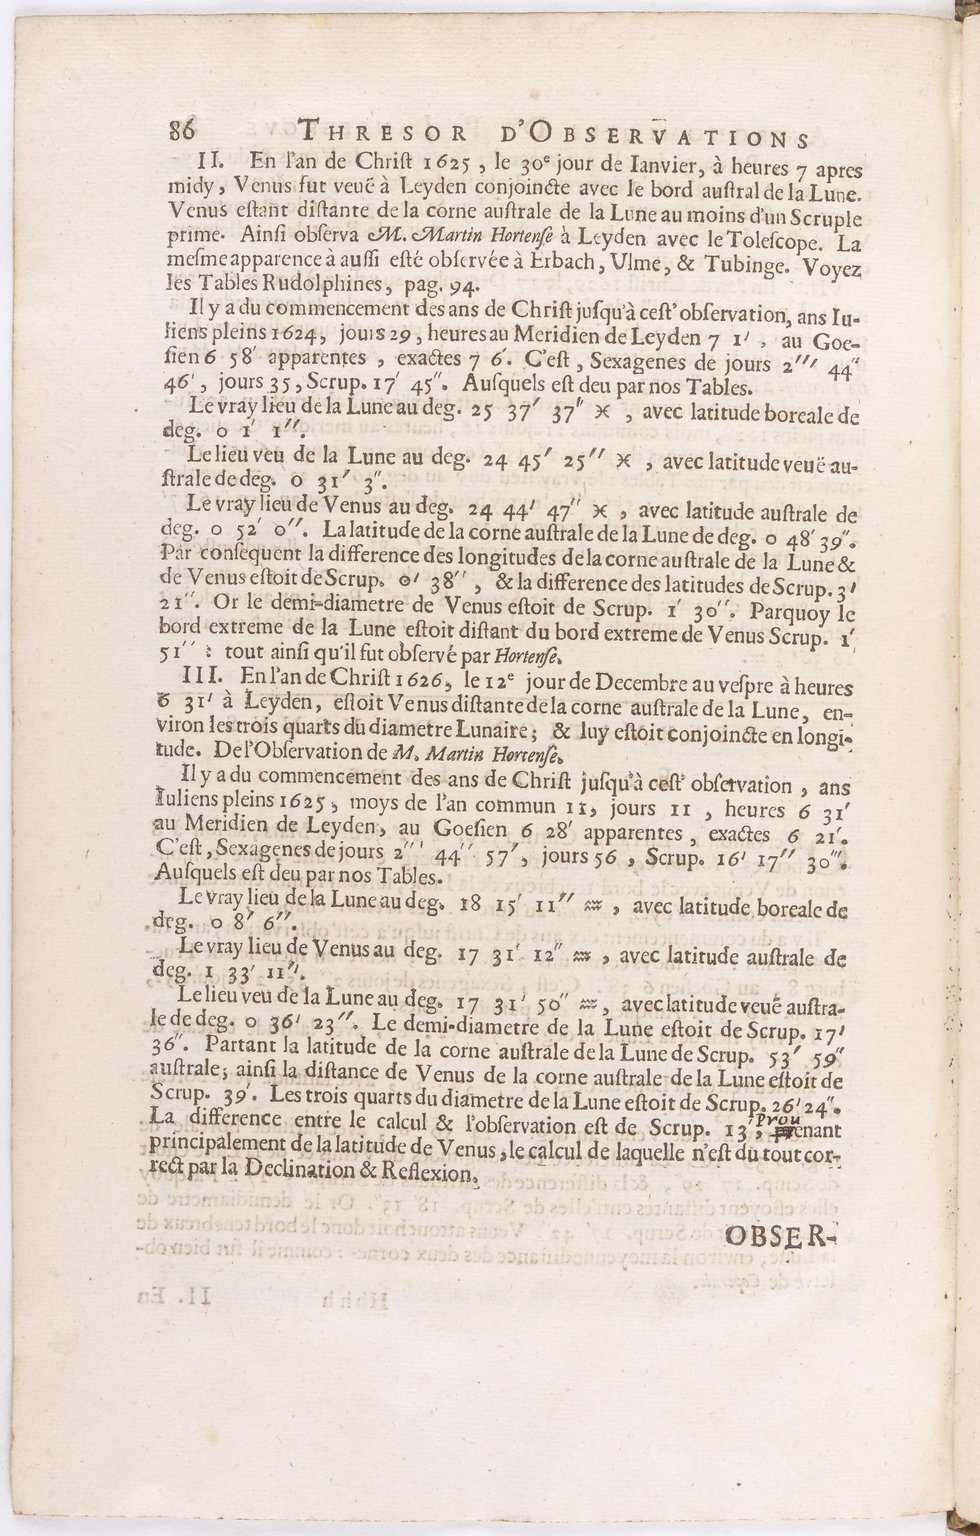 86 THRESOR D'OBSERVATIONS
II. En l'an de Christ 1625, le 30e jour de Ianvier, à heures 7 apres
midy, Venus fut veuë à Leyden conjoincte avec le bord austral de la Lune.
Venus estant distante de la corne australe de la Lune au moins d'un Scruple
prime. Ainsi observa M. Martin Hortense à Leyden avec le Tolescope. La
mesme apparence à aussi esté observée à Erbach, Ulme, & Tubinge. Voyez
les Tables Rudolphines, pag. 94.
Il y a du commencement des ans de Christ jusqu'à cest' observation, ans Iu-
liens pleins 1624, jours 29, heures au Meridien de Leyden 7 1′, au Goe-
sien 6 58′ apparentes, exactes 7 6′. C'est, Sexagenes de jours 2‴ 44″
46′, jours 35, Scrup. 17′ 45″. Ausquels est deu par nos Tables.
Le vray lieu de la Lune au deg. 25 37′ 37″ ♓, avec latitude boreale de
deg. 0 1′ 1″.
Le lieu veu de la Lune au deg. 24 45′ 25″ ♓, avec latitude veuë au-
strale de deg. 0 31′ 3″.
Le vray lieu de Venus au deg. 24 44′ 47″ ♓, avec latitude australe de
deg. 0 52′ 0″. La latitude de la corne australe de la Lune de deg. 0 48′ 39″.
Par consequent la difference des longitudes de la corne australe de la Lune &
de Venus estoit de Scrup. 0′ 38″, & la difference des latitudes de Scrup. 3′
21″. Or le demi-diametre de Venus estoit de Scrup. 1′ 30″. Parquoy le
bord extreme de la Lune estoit distant du bord extreme de Venus Scrup. 1′
51″: tout ainsi qu'il fut observé par Hortense.
III. En l'an de Christ 1626, le 12e jour de Decembre au vespre à heures
6 31′ à Leyden, estoit Venus distante de la corne australe de la Lune, en-
viron les trois quarts du diametre Lunaire; & luy estoit conjoincte en longi-
tude. De l'Observation de M. Martin Hortense.
Il y a du commencement des ans de Christ jusqu'à cest' observation, ans
Iuliens pleins 1625, moys de l'an commun 11, jours 11, heures 6 31′
au Meridien de Leyden, au Goesien 6 28′ apparentes, exactes 6 21′.
C'est, Sexagenes de jours 2‴ 44″ 57′, jours 56, Scrup. 16′ 17″ 30‴.
Ausquels est deu par nos Tables.
Le vray lieu de la Lune au deg. 18 15′ 11″ ♒, avec latitude boreale de
deg. 0 8′ 6″.
Le vray lieu de Venus au deg. 17 31′ 12″ ♒, avec latitude australe de
deg. 1 33′ 11″.
Le lieu veu de la Lune au deg. 17 31′ 50″ ♒, avec latitude veuë austra-
le de deg. 0 36′ 23″. Le demi-diametre de la Lune estoit de Scrup. 17′
36″. Partant la latitude de la corne australe de la Lune de Scrup. 53′ 59″
australe; ainsi la distance de Venus de la corne australe de la Lune estoit de
Scrup. 39′. Les trois quarts du diametre de la Lune estoit de Scrup. 26′ 24″.
La difference entre le calcul & l'observation est de Scrup. 13′, Provenant
principalement de la latitude de Venus, le calcul de laquelle n'est du tout cor-
rect par la Declination & Reflexion.
OBSER-